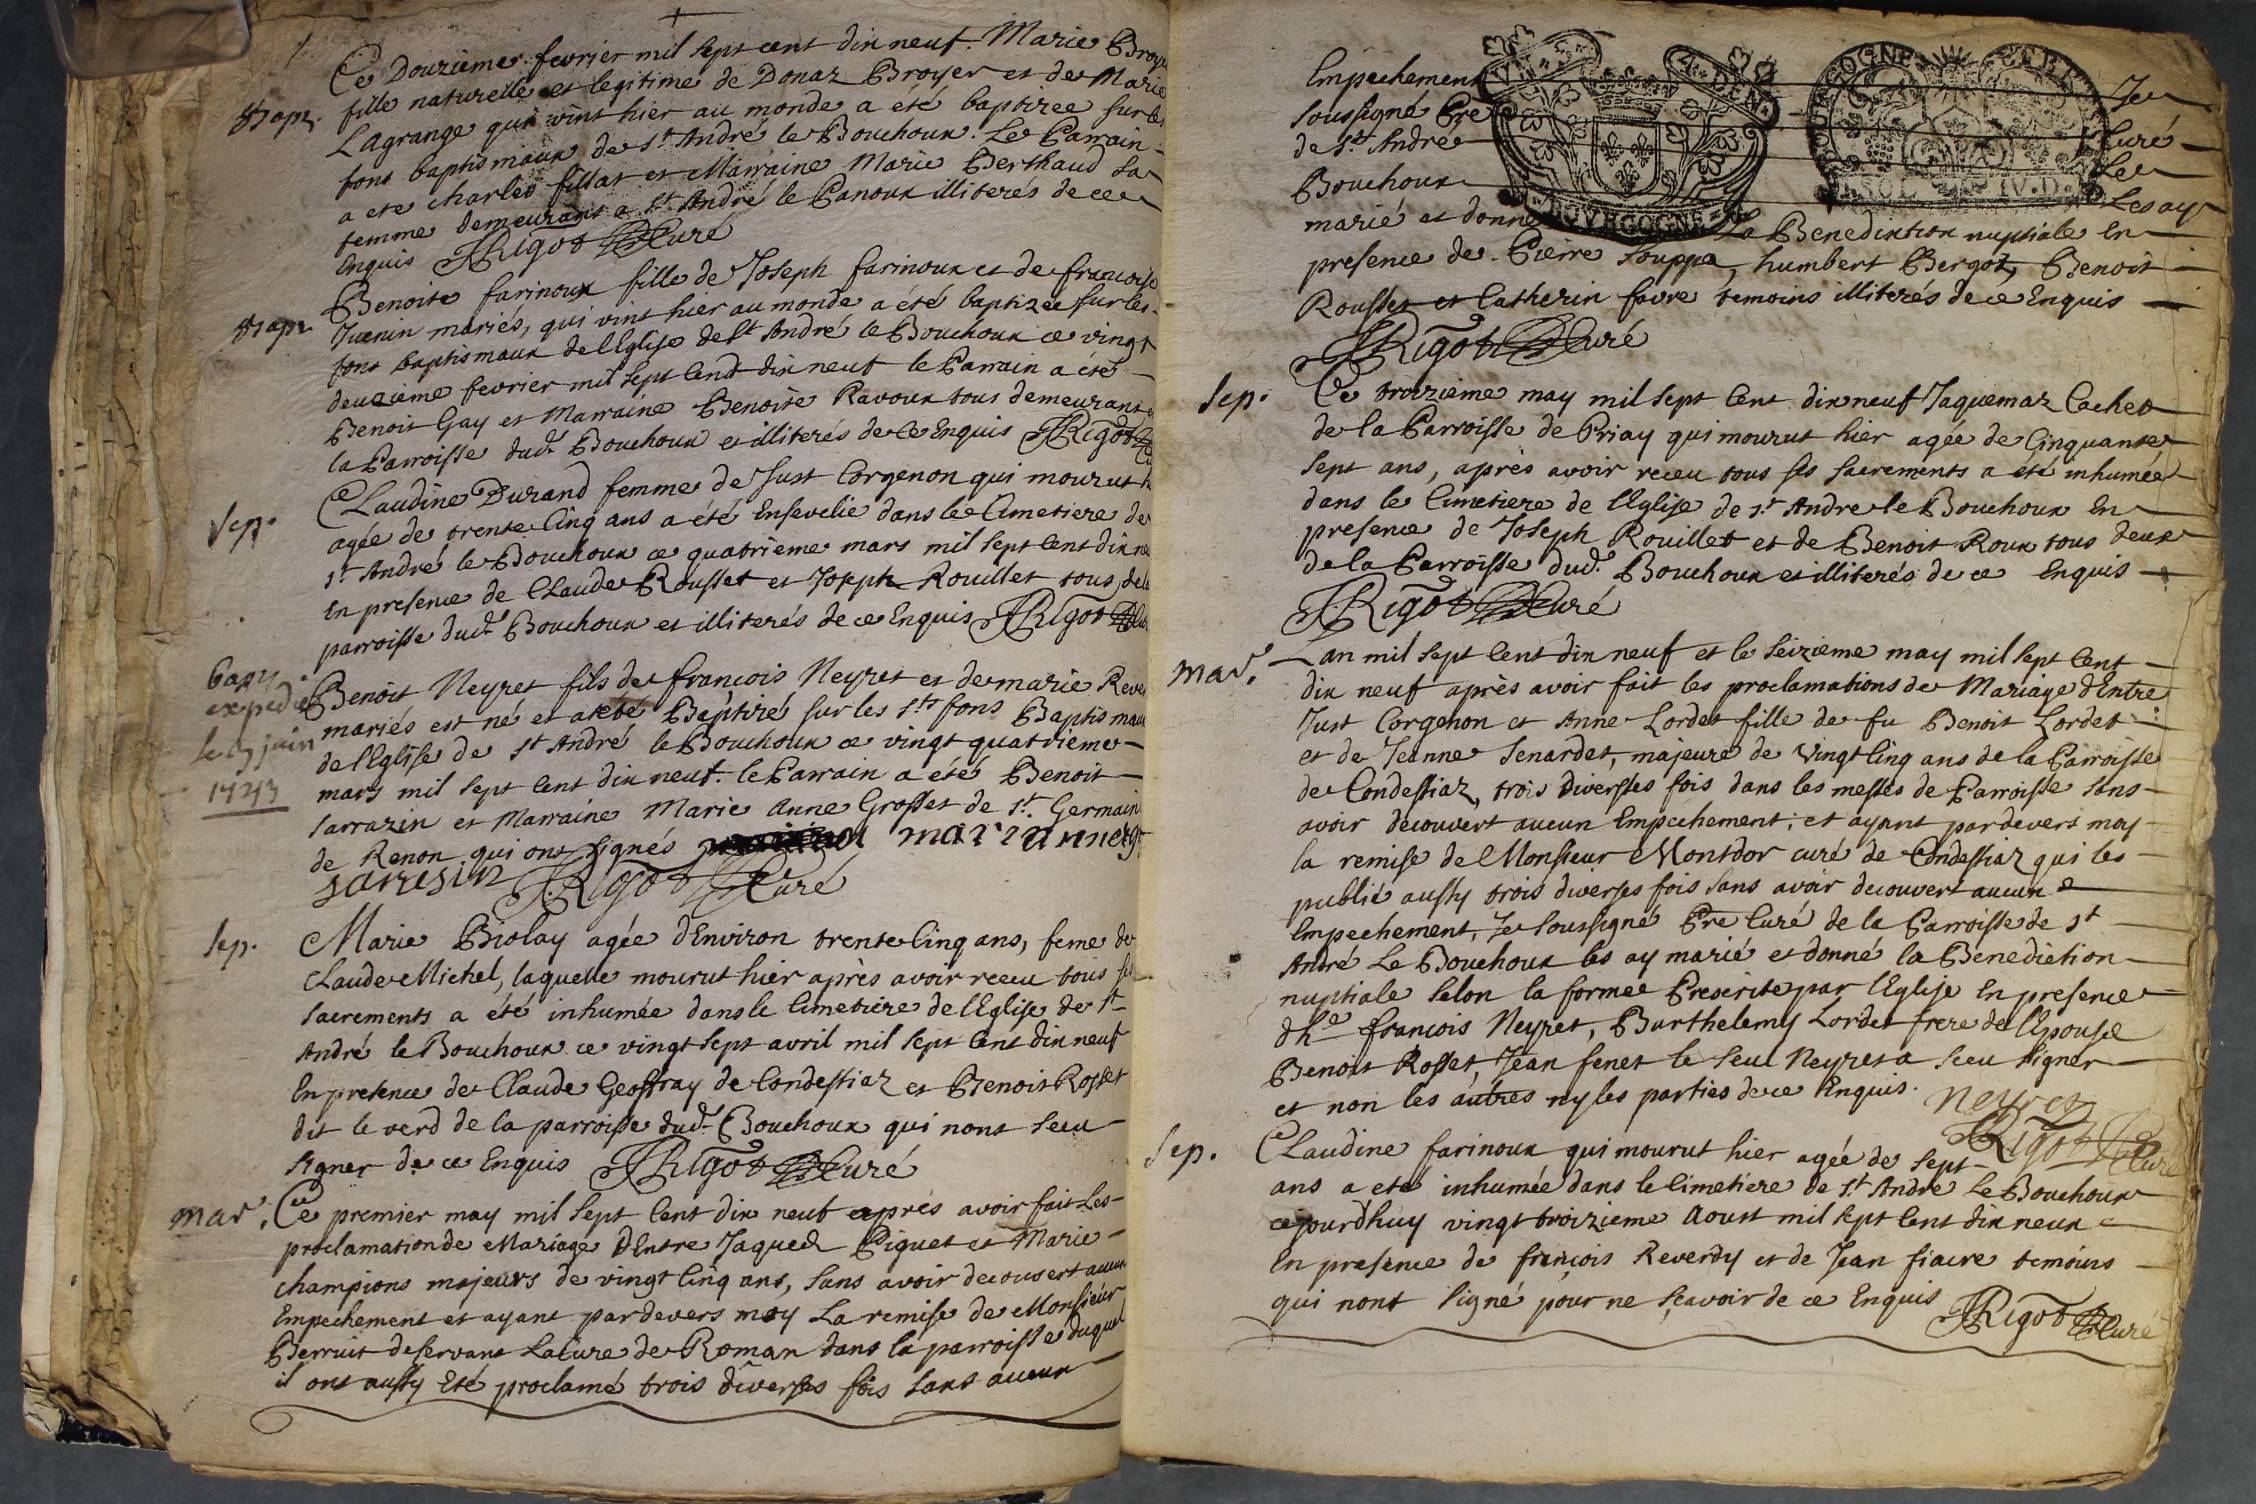 Ce Douzieme fevrier mil sept cent dix neuf. Marie Broye
Bapt. fille naturelle et legitime de Donaz Broyer et de Marie
Lagrange qui vint hier au monde a été baptizee sur les
fons baptismaux de st André le Bouchoux. Le Parrain
a ete charles fillat et Marraine Marie Berthaud sa
femme demeurant a st André le Panoux illiterés de ce
Enquis JRigot Curé
Benoite farinoux fille de Joseph farinoux et de francoise
Bapt Juenin mariés, qui vint hier au monde a été baptizée sur les
fons baptismaux de l'Eglise de st André le Bouchoux ce vingt
deuxieme fevrier mil sept Cent dix neuf le Parrain a été
Benoit Gay et Marraine Benoite Ravoux tous demeurants
la Parroisse dud. Bouchoux et illiterés de Ce Enquis JRigot
Claudine Durand femme de Just Corgenon qui mourut h
Sep. agée de trente Cinq ans a été Ensevelie dans le Cimetiere de
st André le Bouchoux ce quatrieme mars mil sept Cent dix ne
En presence de Claude Rousset et Joseph Rouillet tous de la
parroisse dud. Bouchoux et illiterés de ce Enquis JRigot Cu
bapt.
expedié
le 9 juin
1743
Benoit Neyret fils de francois Neyret et de marie Rever
mariés est né et a été Baptizé sur les sts fons Baptismaux
de l'Eglise de st André le Bouchoux ce vingt quatrieme
mars mil sept Cent dix neuf. le Parrain a été Benoit
Sarrazin et Marraine Marie Anne Grosset de st. Germain
de Renon qui ont signés marianne gr
sarresin JRigot Curé
Sep. Marie Biolay agée d'Environ trente Cinq ans, feme de
Claude Michel, laquelle mourut hier après avoir receu tous ses
sacrements a été inhumée dans le Cimetiere de l'Eglise de st
André le Bouchoux ce vingt sept avril mil sept Cent dix neuf
En presence de Claude Geoffray de Condessiaz et Benoit Rosset
dit le verd de la parroisse dud. Bouchoux qui nont seeu
signer de ce Enquis JRigot Curé
mar. Ce premier may mil sept Cent dix neuf après avoir fait Les
proclamation de Mariage D'Entre Jaques Piquet et Marie
champions majeurs de vingt Cinq ans, sans avoir decouvert aucun
Empechement et ayant pardevers moy La remise de Monsieur
Berruit desservant La Cure de Roman dans la parroisse duquel
il ont aussy Eté proclamé trois diverses fois sans aucun
V. S. 4. DEN.
BOURGOGNE
BOURGOGNE
SOL. IV. D.
Empechement Je
soussigné Pre Curé
de st. André Le
Bouchoux Les ay
marié et donné La Benediction nuptiale En
presence de Pierre Souppa, humbert Bergot, Benoit
Rousset et Catherin favre temoins illiterés de ce Enquis
JRigot Curé
Sep. Ce troizieme may mil sept Cent dix neuf Jaquemaz Cachet
de la Parroisse de Priay qui mourut hier agée de Cinquante
sept ans, après avoir receu tous ses sacrements a été inhumée
dans le Cimetiere de l'Eglise de st. Andre le Bouchoux En
presence de Joseph Rouillet et de Benoit Roux tous deux
de la Parroisse dud. Bouchoux et illiterés de ce Enquis
JRigot Curé
mar. Lan mil sept Cent dix neuf et le seizieme may mil sept Cent
dix neuf après avoir fait les proclamations de Mariage d'Entre
Just Corgenon et Anne Lordet fille de fu Benoit Lordet
et de Jeanne Senardet, majeure de vingt Cinq ans de la Parroisse
de Condessiaz, trois diverses fois dans les messes de Parroisse sans
avoir decouvert aucun Empechement; et ayant pardevers moy
la remise de Monsieur Montdor curé de Condessiaz qui les
publié aussy trois diverses fois sans avoir decouvert aucun
Empechement, Je soussigné Pre Curé de la Parroisse de st
André Le Bouchoux les ay marié et donné la Benediction
nuptiale selon la forme Prescrite par l'Eglise En presence
d'he françois Neyret, Barthelemy Lordet frere de l'Epouse
Benoit Rosset, Jean fenet le seul Neyret a sceu signer
et non les autres ny les parties de ce Enquis. neyret
JRigot Curé
Sep. Claudine farinoux qui mourut hier agée de sept
ans a eté inhumée dans le Cimetiere de st. André Le Bouchoux
cejourdhuy vingt troizieme Aoust mil sept Cent dix neux
En presence de françois Reverdy et de Jean fiacre temoins
qui nont signé pour ne sçavoir de ce Enquis
JRigot Curé